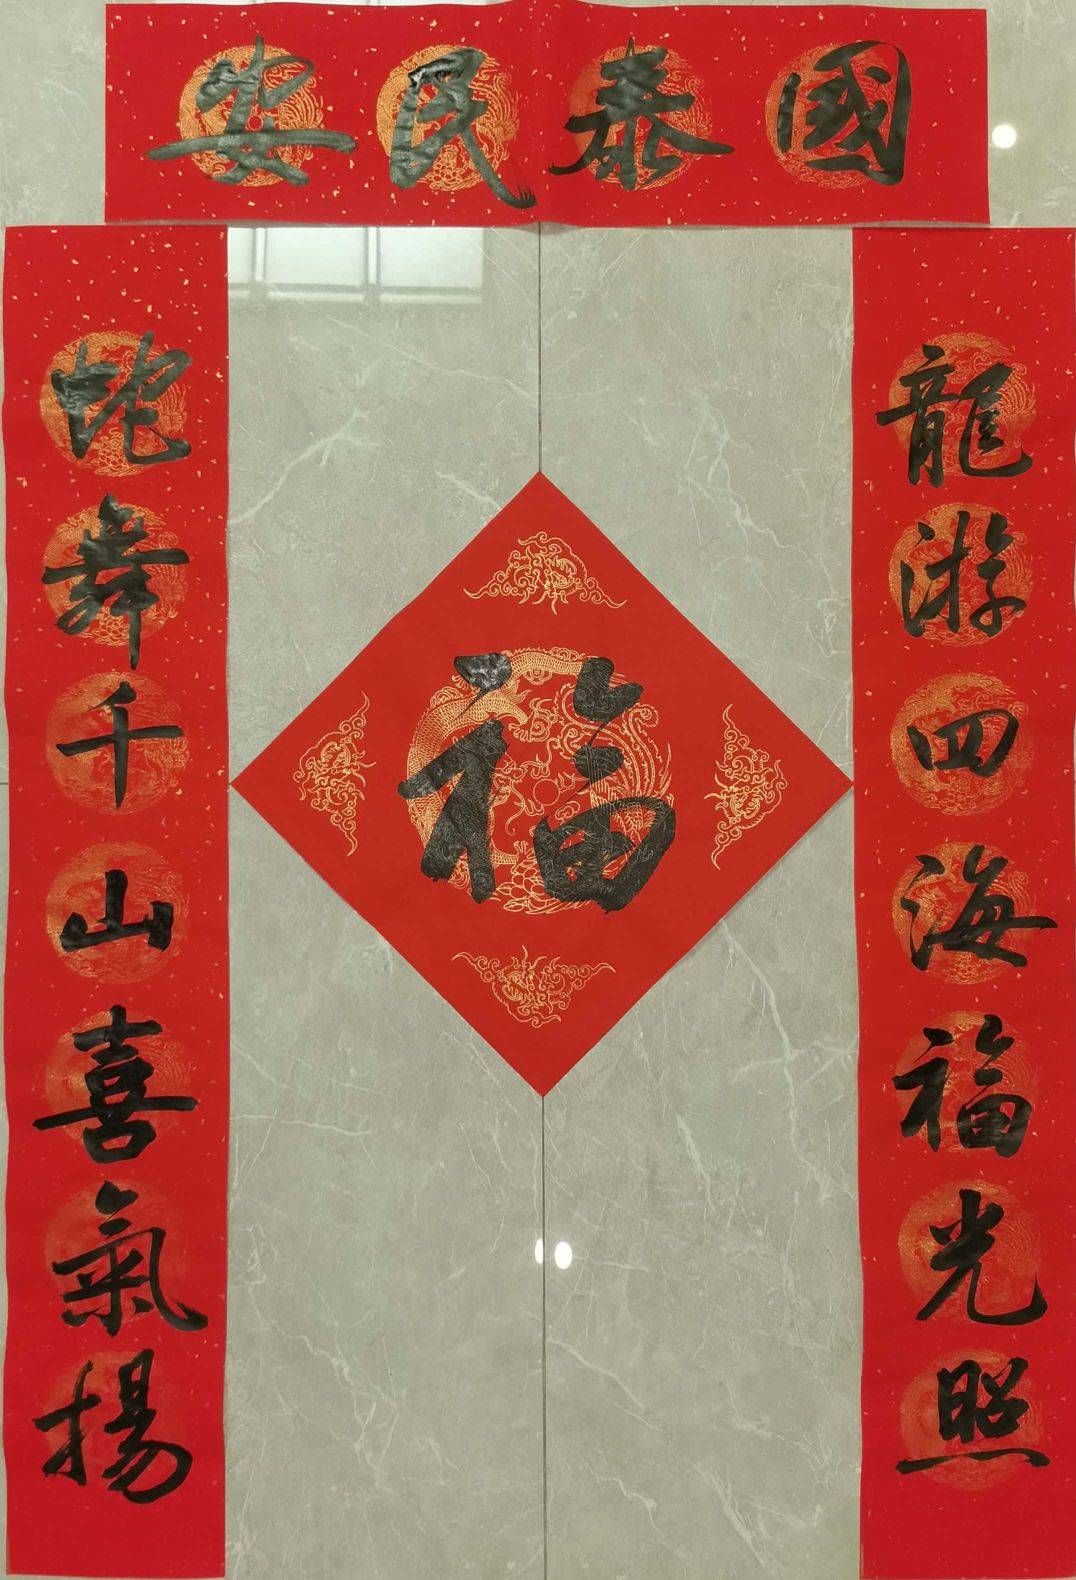 國泰民安
龍游四海福光照
福
蛇舞千山喜氣揚